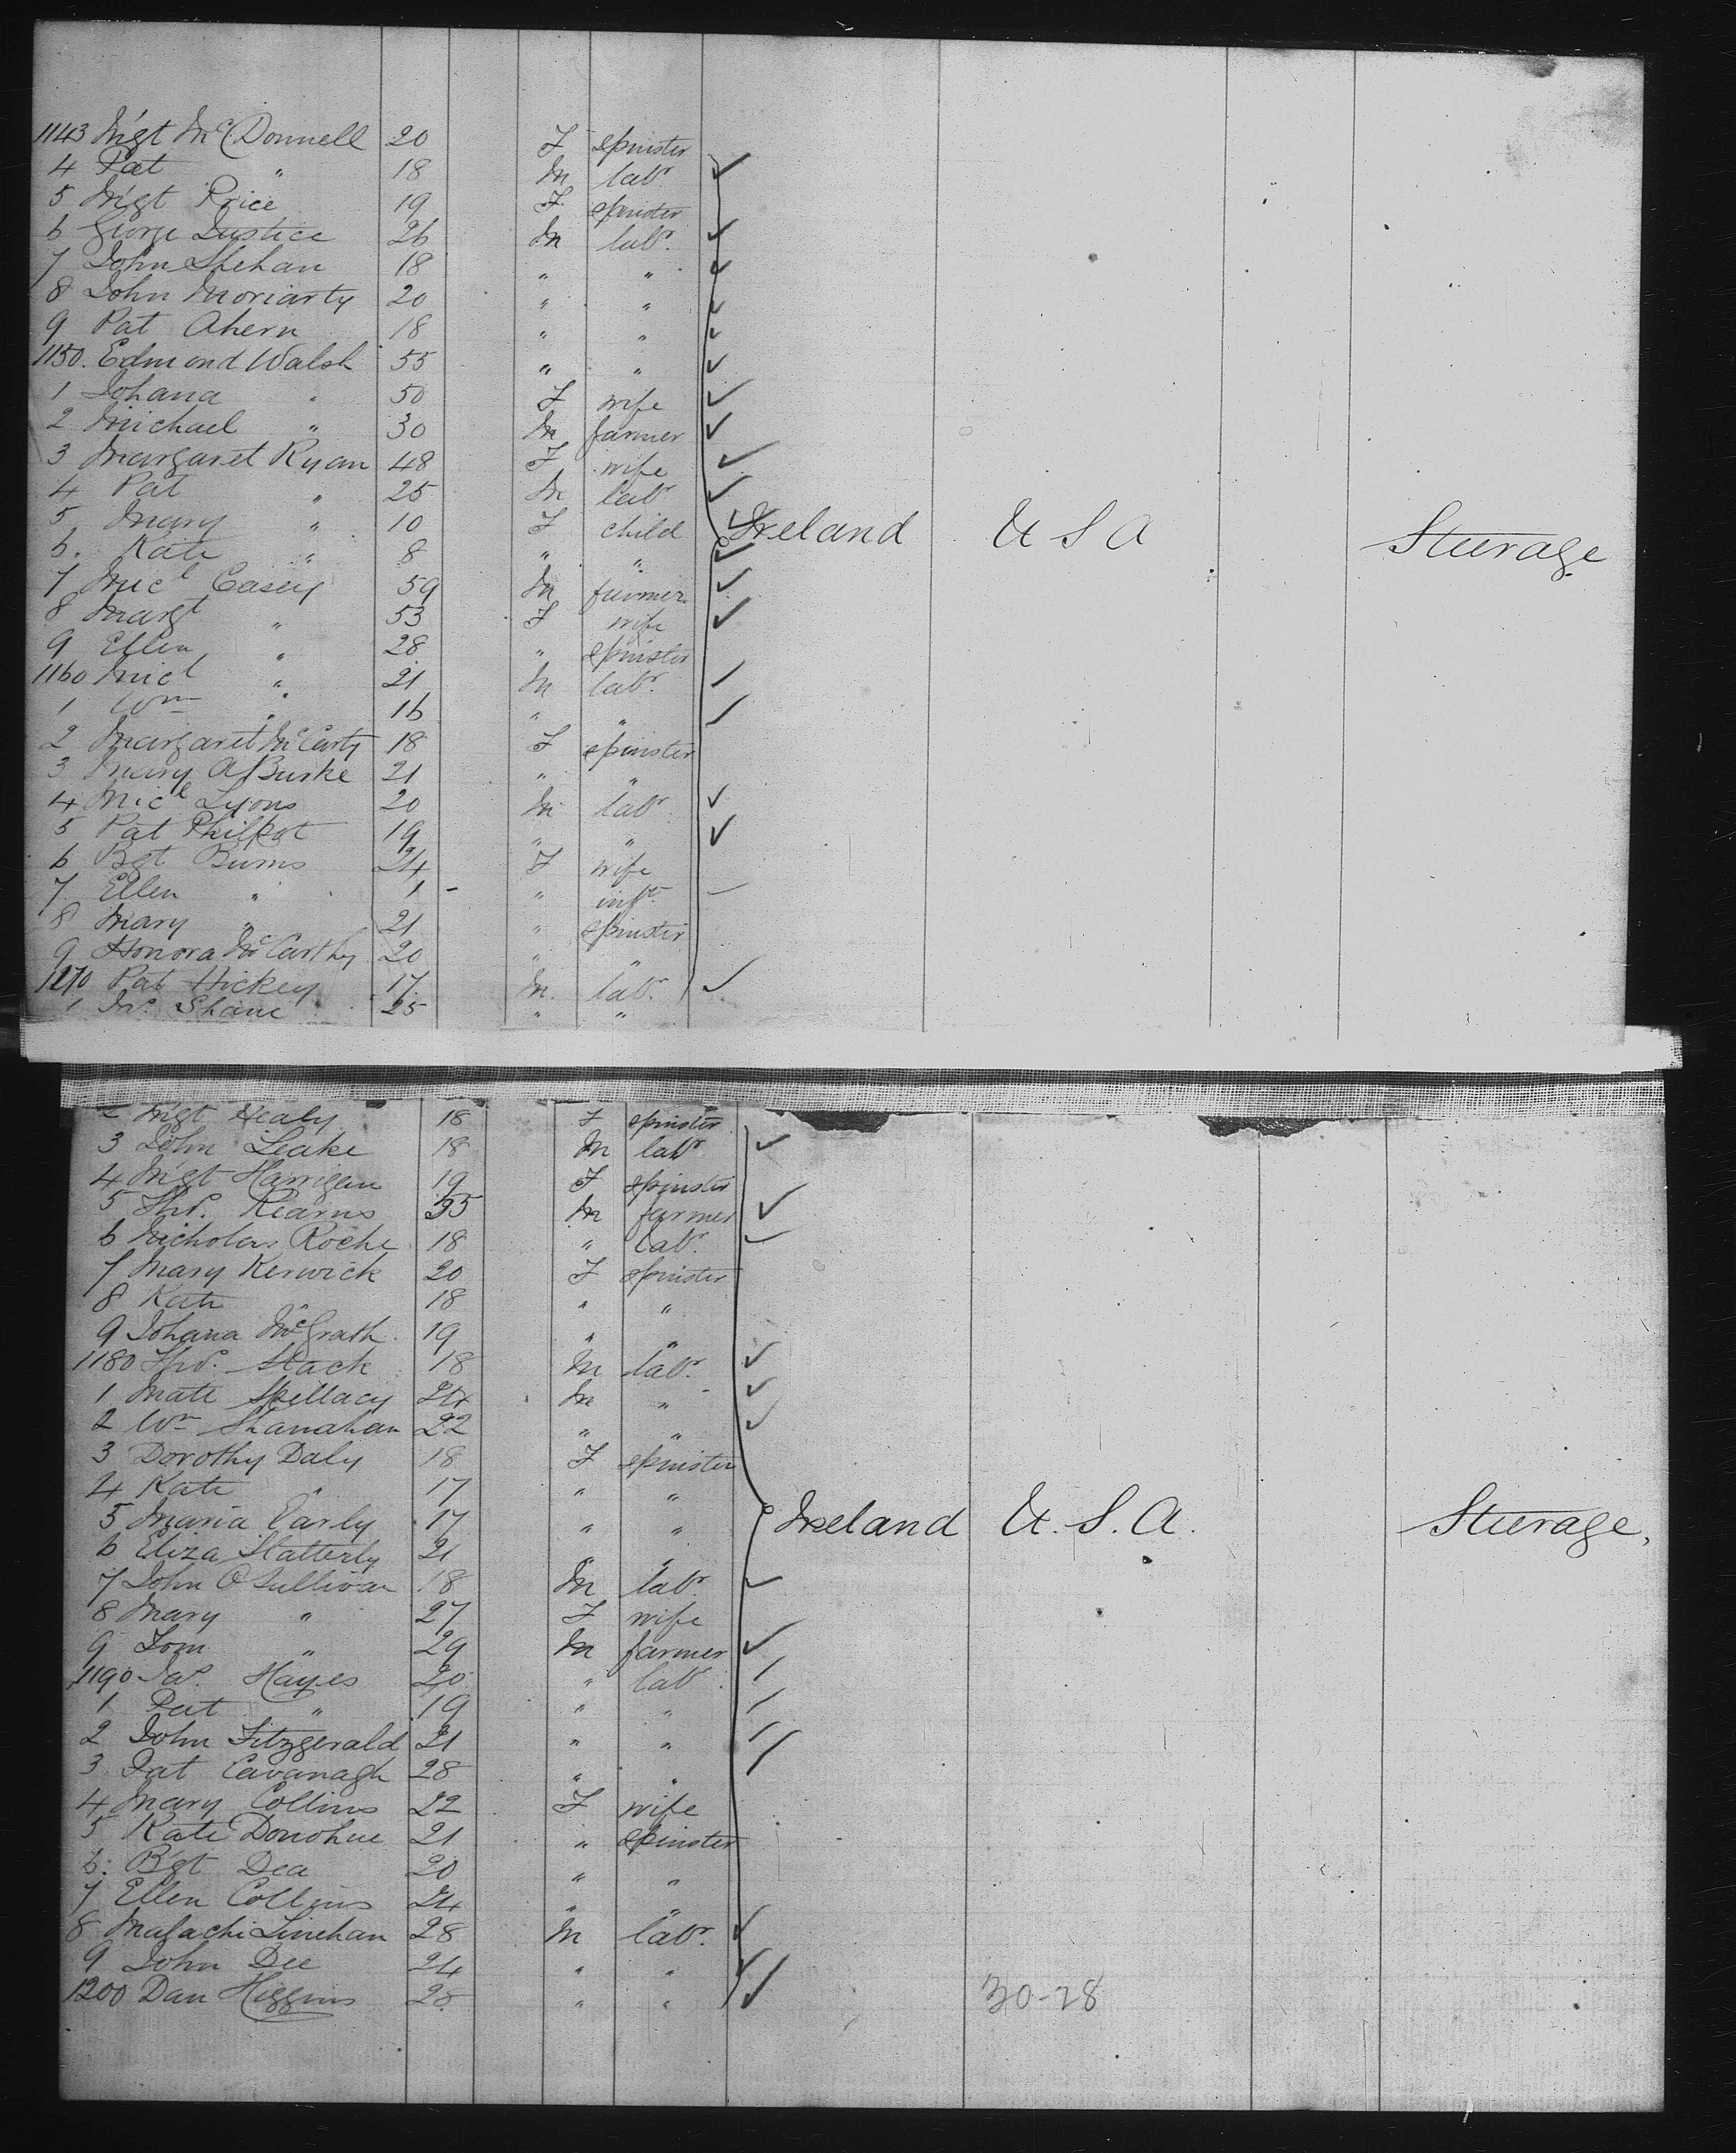 1143 Mgt McDonnell 20 F spinster
4 Pat " 18 M labr.
5 Mgt Price 19 F. spinster
6 George Justice 26 M labr.
7 John Shehan 18 " "
8 John Moriarty 20 " "
9 Pat Ahern 18 " "
1150. Edmond Walsh 55 " "
1 Johana " 50 F wife
2 Michael " 30 M farmer
3 Margaret Ryan 48 F wife
4 Pat " 25 M labr
5 Mary " 10 F child Ireland U S A Steerage
6. Kate " 8 " "
7 Micl Casey 59 M farmer
8 Margt " 53 F wife
9 Ellen " 28 " spinster
1160 Micl " 21 M labr.
1 Wm " 16 " "
2 Margaret McCarty 18 F spinster
3 Mary A Burke 21 " "
4 Micl Lyons 20 M labr
5 Pat Philpot 19 " "
6 Bgt Burns 24 F wife
7 Ellen " 1 - " inft
8 Mary " 21 " spinster
9 Honora McCarthy 20 " "
1170 Pat Hickey 17. M. labr.
1 Jas. Shane 25 " "
2 Mgt Healy 18 F spinster
3 John Leake 18 M labr
4 Mgt Harrigan 19 F spinster
5 Thos. Kearns 35 M farmer
6 Nicholas Roche 18 " labr.
7 Mary Kerwick 20 F spinster
8 Kate " 18 " "
9 Johana McGrath. 19 " "
1180 Thos. Stack 18 M labr.
1 Matt Spellacy 24 M "
2 Wm Shanahan 22 " "
3 Dorothy Daly 18 F spinster
4 Kate " 17 " "
5 Maria Early 17 " " Ireland U. S. A. Steerage,
6 Eliza Slatterly 21 " "
7 John O'Sullivan 18 M labr.
8 Mary " 27 F wife
9 Tom " 29 M farmer
1190 Jas. Hayes 20 " labr.
1 Pat " 19 " "
2 John Fitzgerald 21 " "
3 Pat Cavanagh 28 " "
4 Mary Collins 22 F wife
5 Kate Donohue 21 " spinster
6. Bgt Dea 20 " "
7 Ellen Collins 24 " "
8 Malachi Linehan 28 M labr.
9 John Dee 24 " "
1200 Dan Higgins 28 " "
30-28